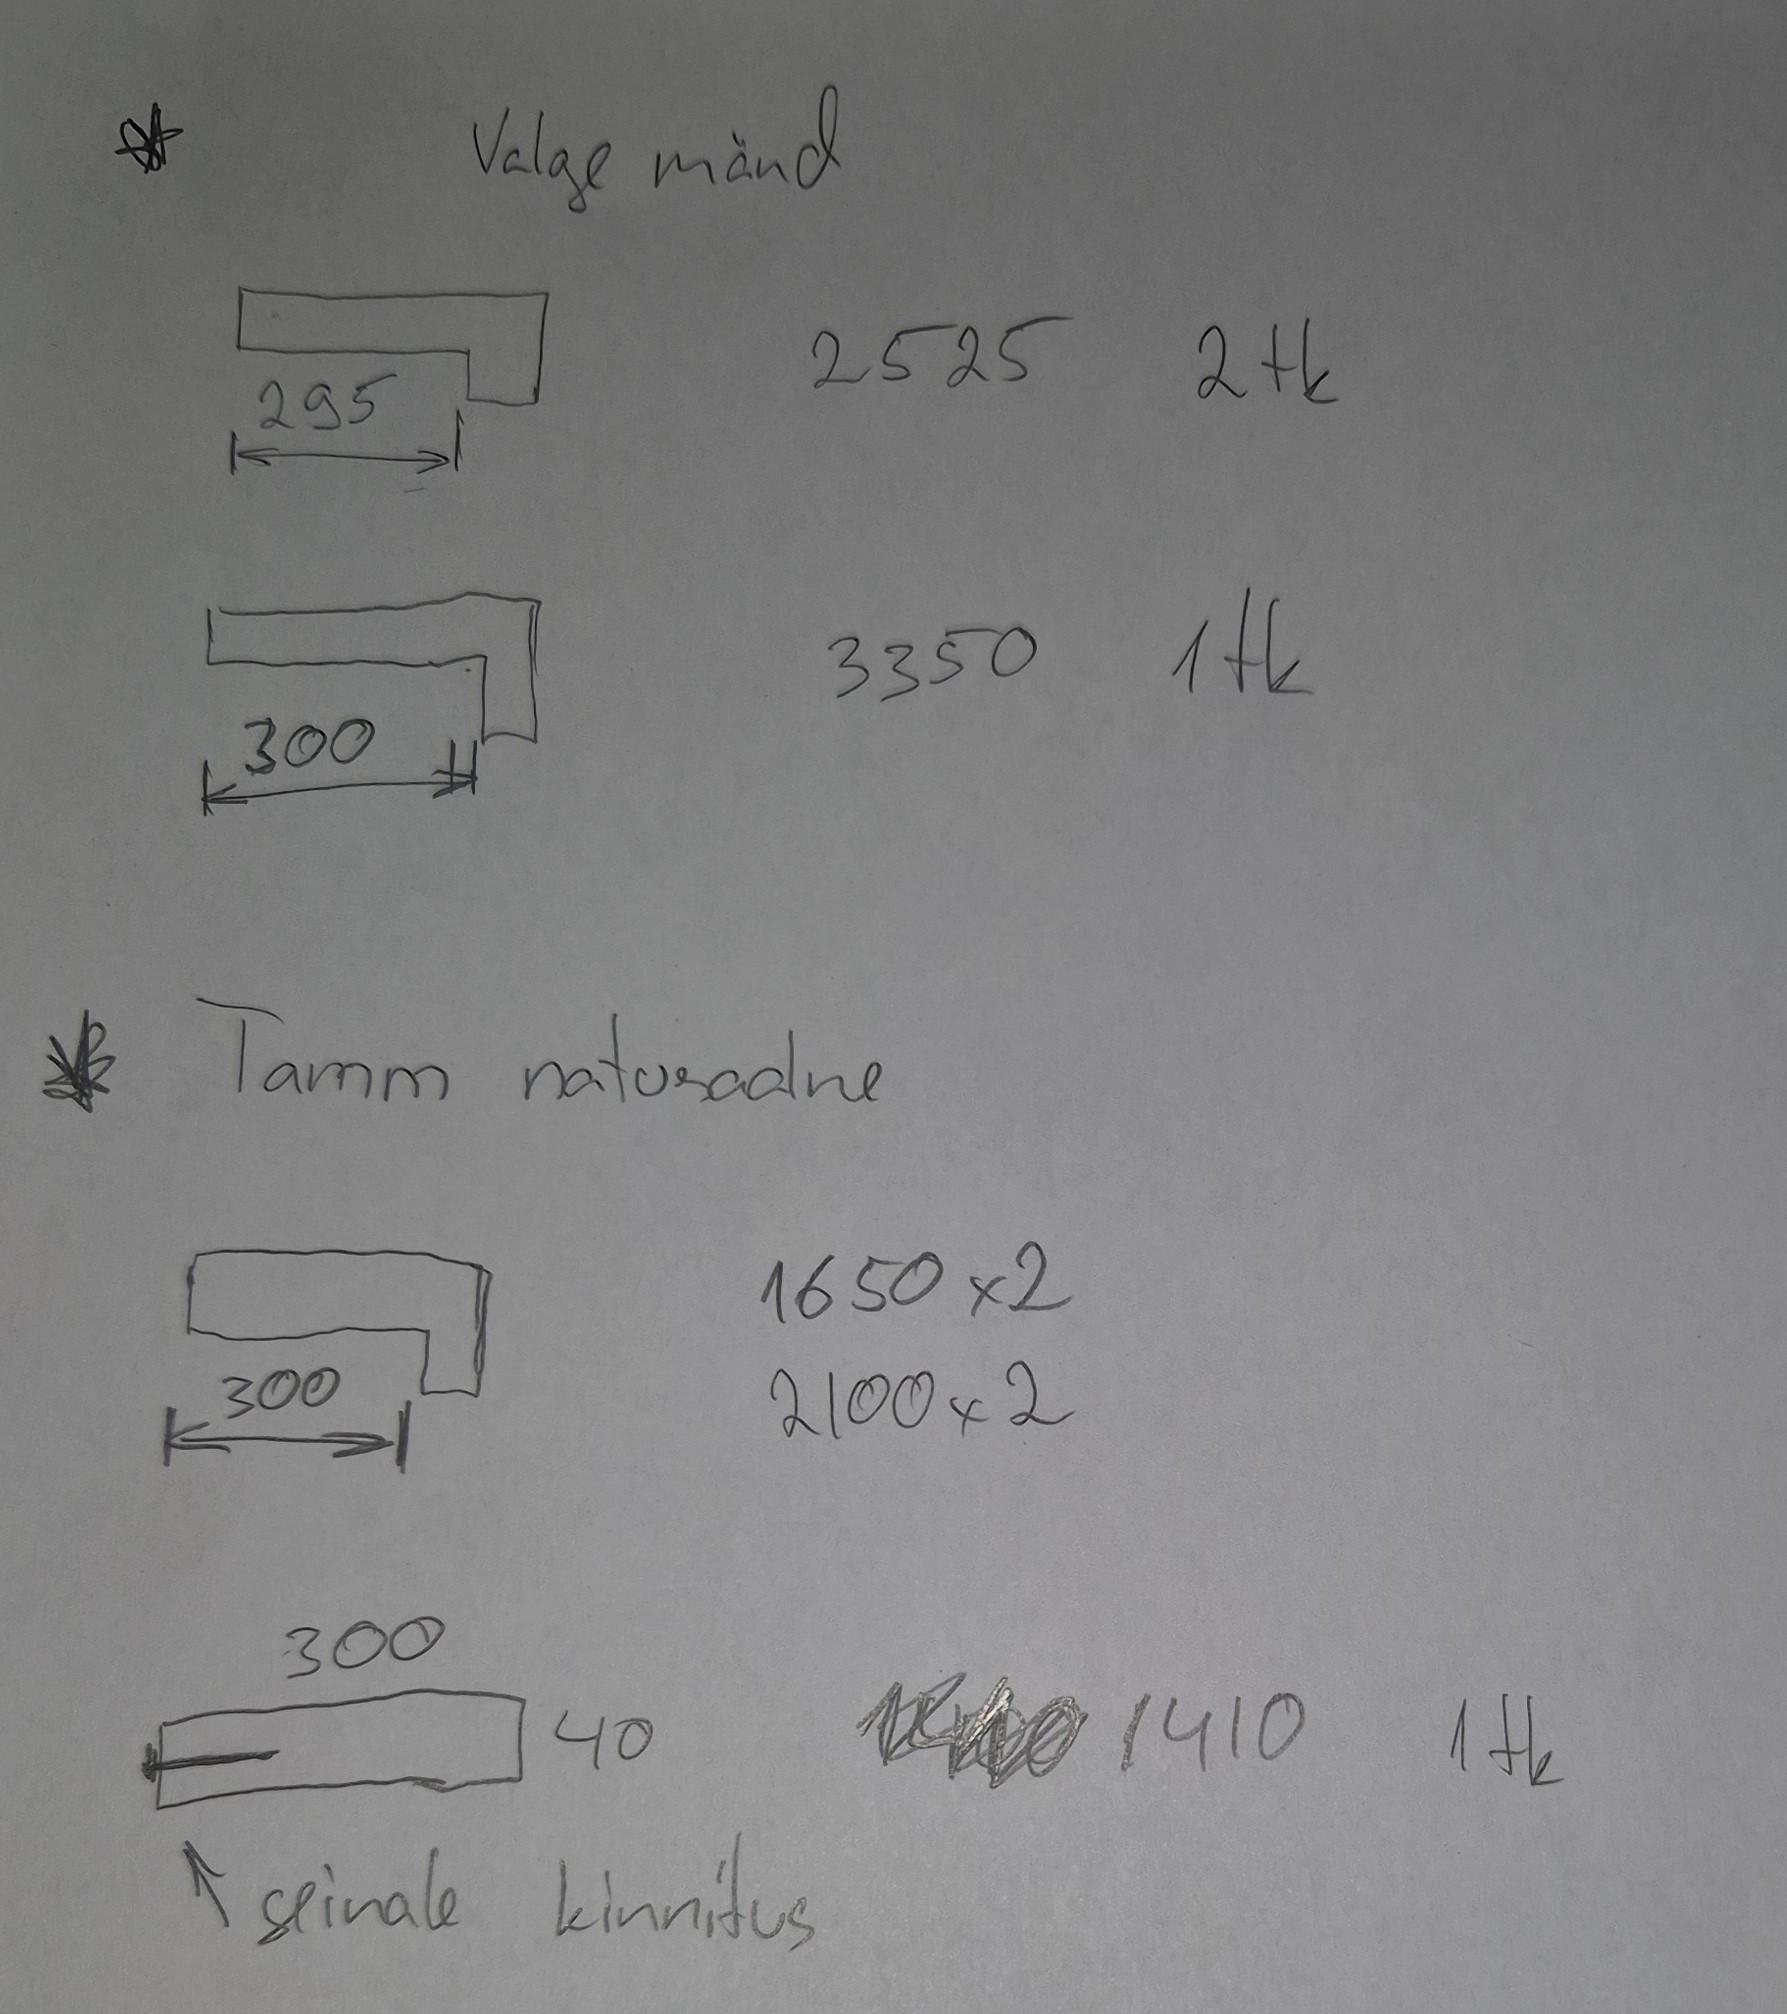 * Valge mänd
295 2525 2tk
300 3350 1tk
* Tamm naturaadne
300 1650 x2
2100 x2
300
40 1410 1tk
↑ seinale kinnitus